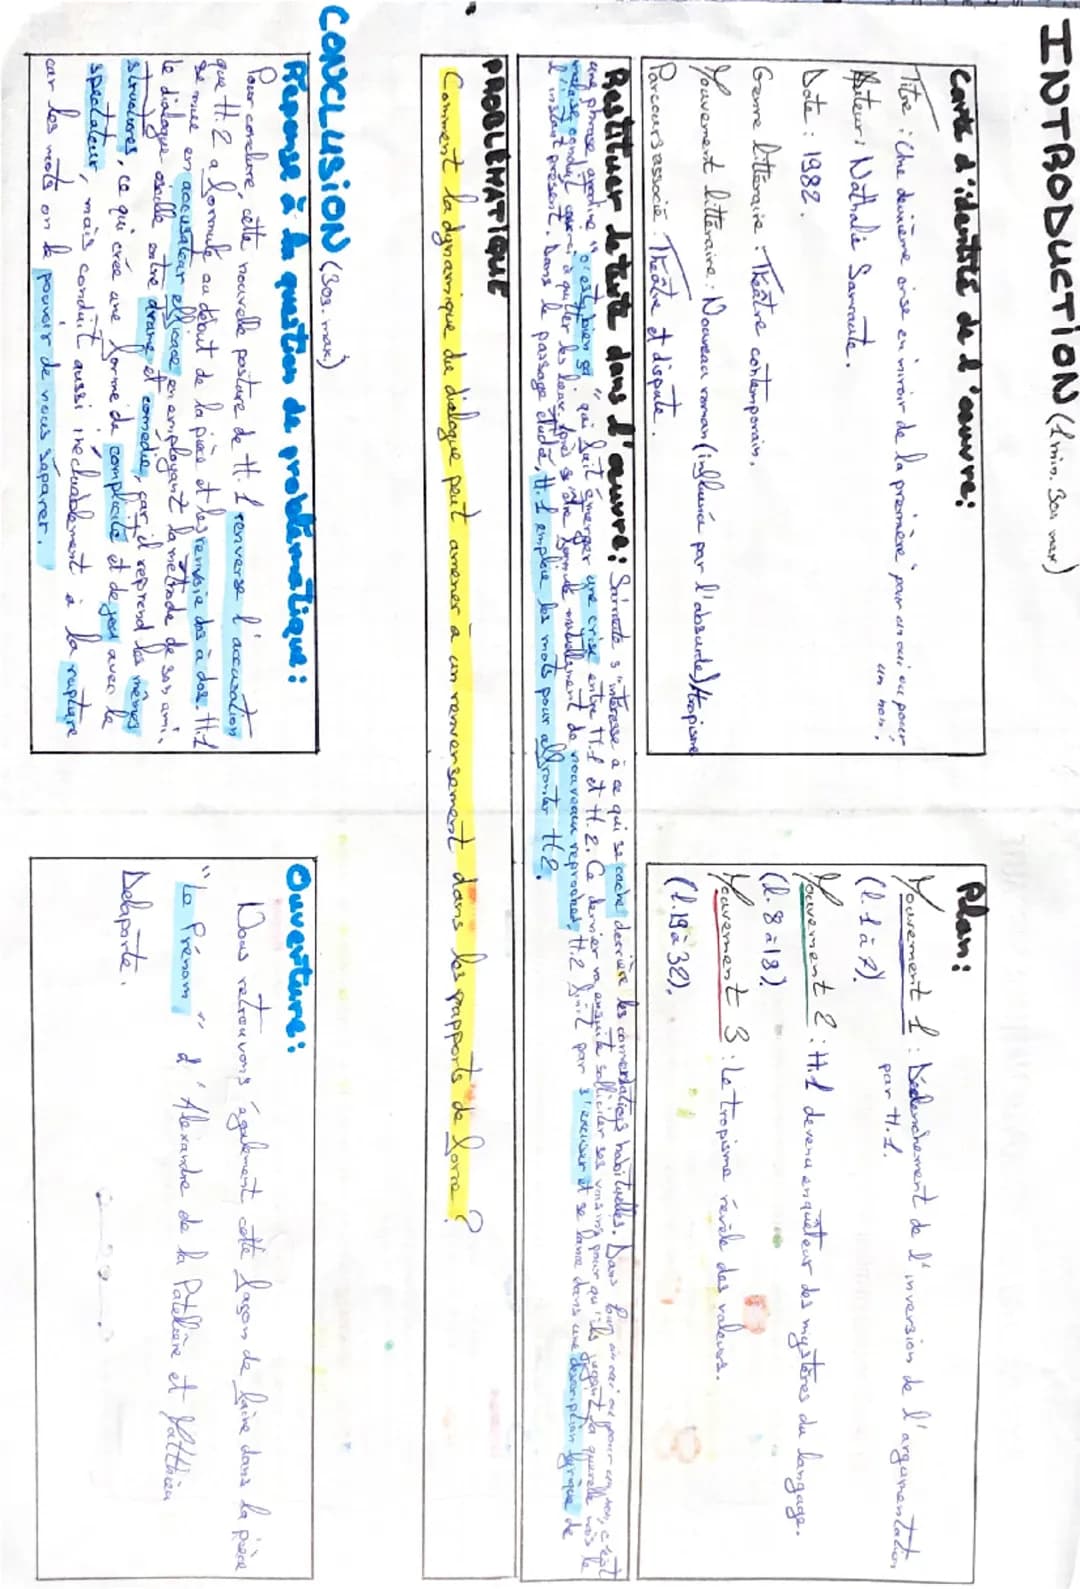 INTRODUCTION (1 min. 30s max)
Carte d'identité de l'œuvre:
Titre: Une deuxième mise en miroir de la première "pour un oui ou pour un non".
Auteur: Nathalie Sarraute.
Date: 1982.
Genre littéraire: Théâtre contemporain.
Mouvement littéraire: Nouveau roman (influencé par l'absurde)/tropisme
Parcours associé: Théâtre et dispute.
Plan:
Mouvement 1: Déclenchement de l'inversion de l'argumentation
par H.1.
(l. 1 à 7).
Mouvement 2: H.1 devenu enquêteur des mystères du langage.
(l. 8 à 18).
Mouvement 3: Le tropisme révèle des valeurs.
(l. 19 à 32).
Restituer le texte dans l'œuvre: Sarraute s'intéresse à ce qui se cache derrière les habituelles. Dans pour un oui ou pour un non, c'est
une phrase "c'est bien ça" qui fait émerger une crise entre H.1 et H.2. Ce dernier va ensuite solliciter ses voisins pour qu'ils jugent la querelle mais le
conduit à quitter les lieux. Après de nouveau reproches, H.2 finit par s'excuser et se lance dans une description lyrique de
l'instant présent. Dans le passage étudié, H.1 emploie les mots pour affronter H.2.
PROBLÉMATIQUE
Comment la dynamique du dialogue peut amener à un renversement dans les rapports de force?
CONCLUSION (30s. max)
Réponse à la question de problématique:
Pour conclure, cette nouvelle posture de H.1 renverse l'accusation
que H.2 a formulé au début de la pièce et les renvoie dos à dos. H.1
se mue en accusateur efficace en employant la méthode de son ami.
le dialogue oscille entre drame et comédie, car il reprend les mêmes
structures, ce qui crée une forme de complicité et de jeu avec le
spectateur, mais conduit aussi inéluctablement à la rupture
car les mots on le pouvoir de nous séparer.
Ouverture:
Nous retrouvons également cette façon de faire dans la pièce
"Le Prénom" d'Alexandre de la Patellière et Matthieu
Delaporte.